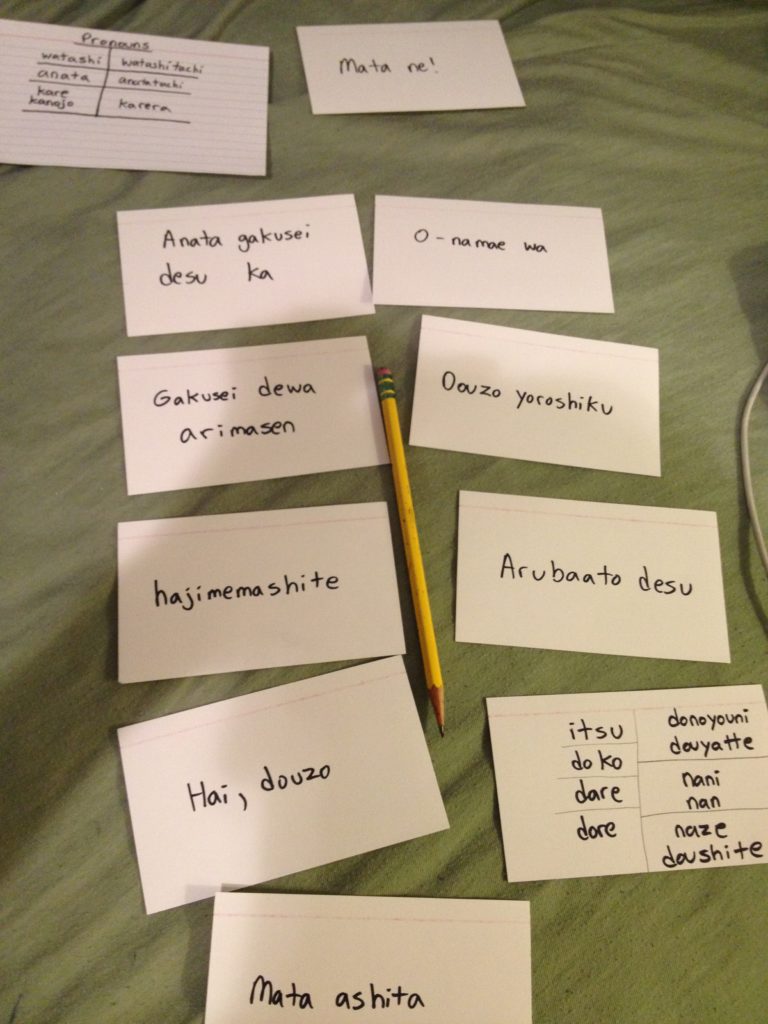 Pronouns
watashi watashitachi
anata anatatachi
kare
kanojo karera
Mata ne!
Anata gakusei
desu ka
O-namae wa
Gakusei dewa
arimasen
Douzo yoroshiku
hajimemashite
Arubaato desu
Hai, douzo
itsu
doko
dare
dore
donoyouni
douyatte
nani
nan
naze
doushite
Mata ashita